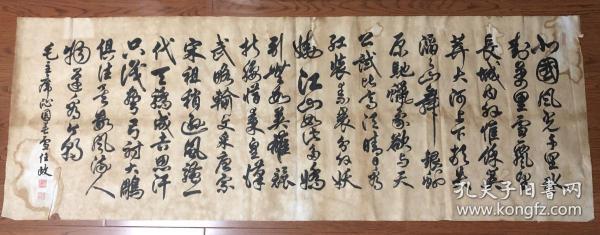 北國風光千里冰
封萬里雪飄望
長城内外惟餘莽
莽大河上下頓失
滔滔山舞銀蛇
原馳蠟象欲与天
公試比高須晴日看
紅裝素裹分外妖
嬈江山如此多嬌
引無數英雄競
折腰惜秦皇漢
武略輸文采唐宗
宋祖稍遜風騷一
代天驕成吉思汗
只識彎弓射大鵰
俱往矣數風流人
物還看今朝
毛主席沁園春雪任政
孔夫子旧书网
www.kongfz.com